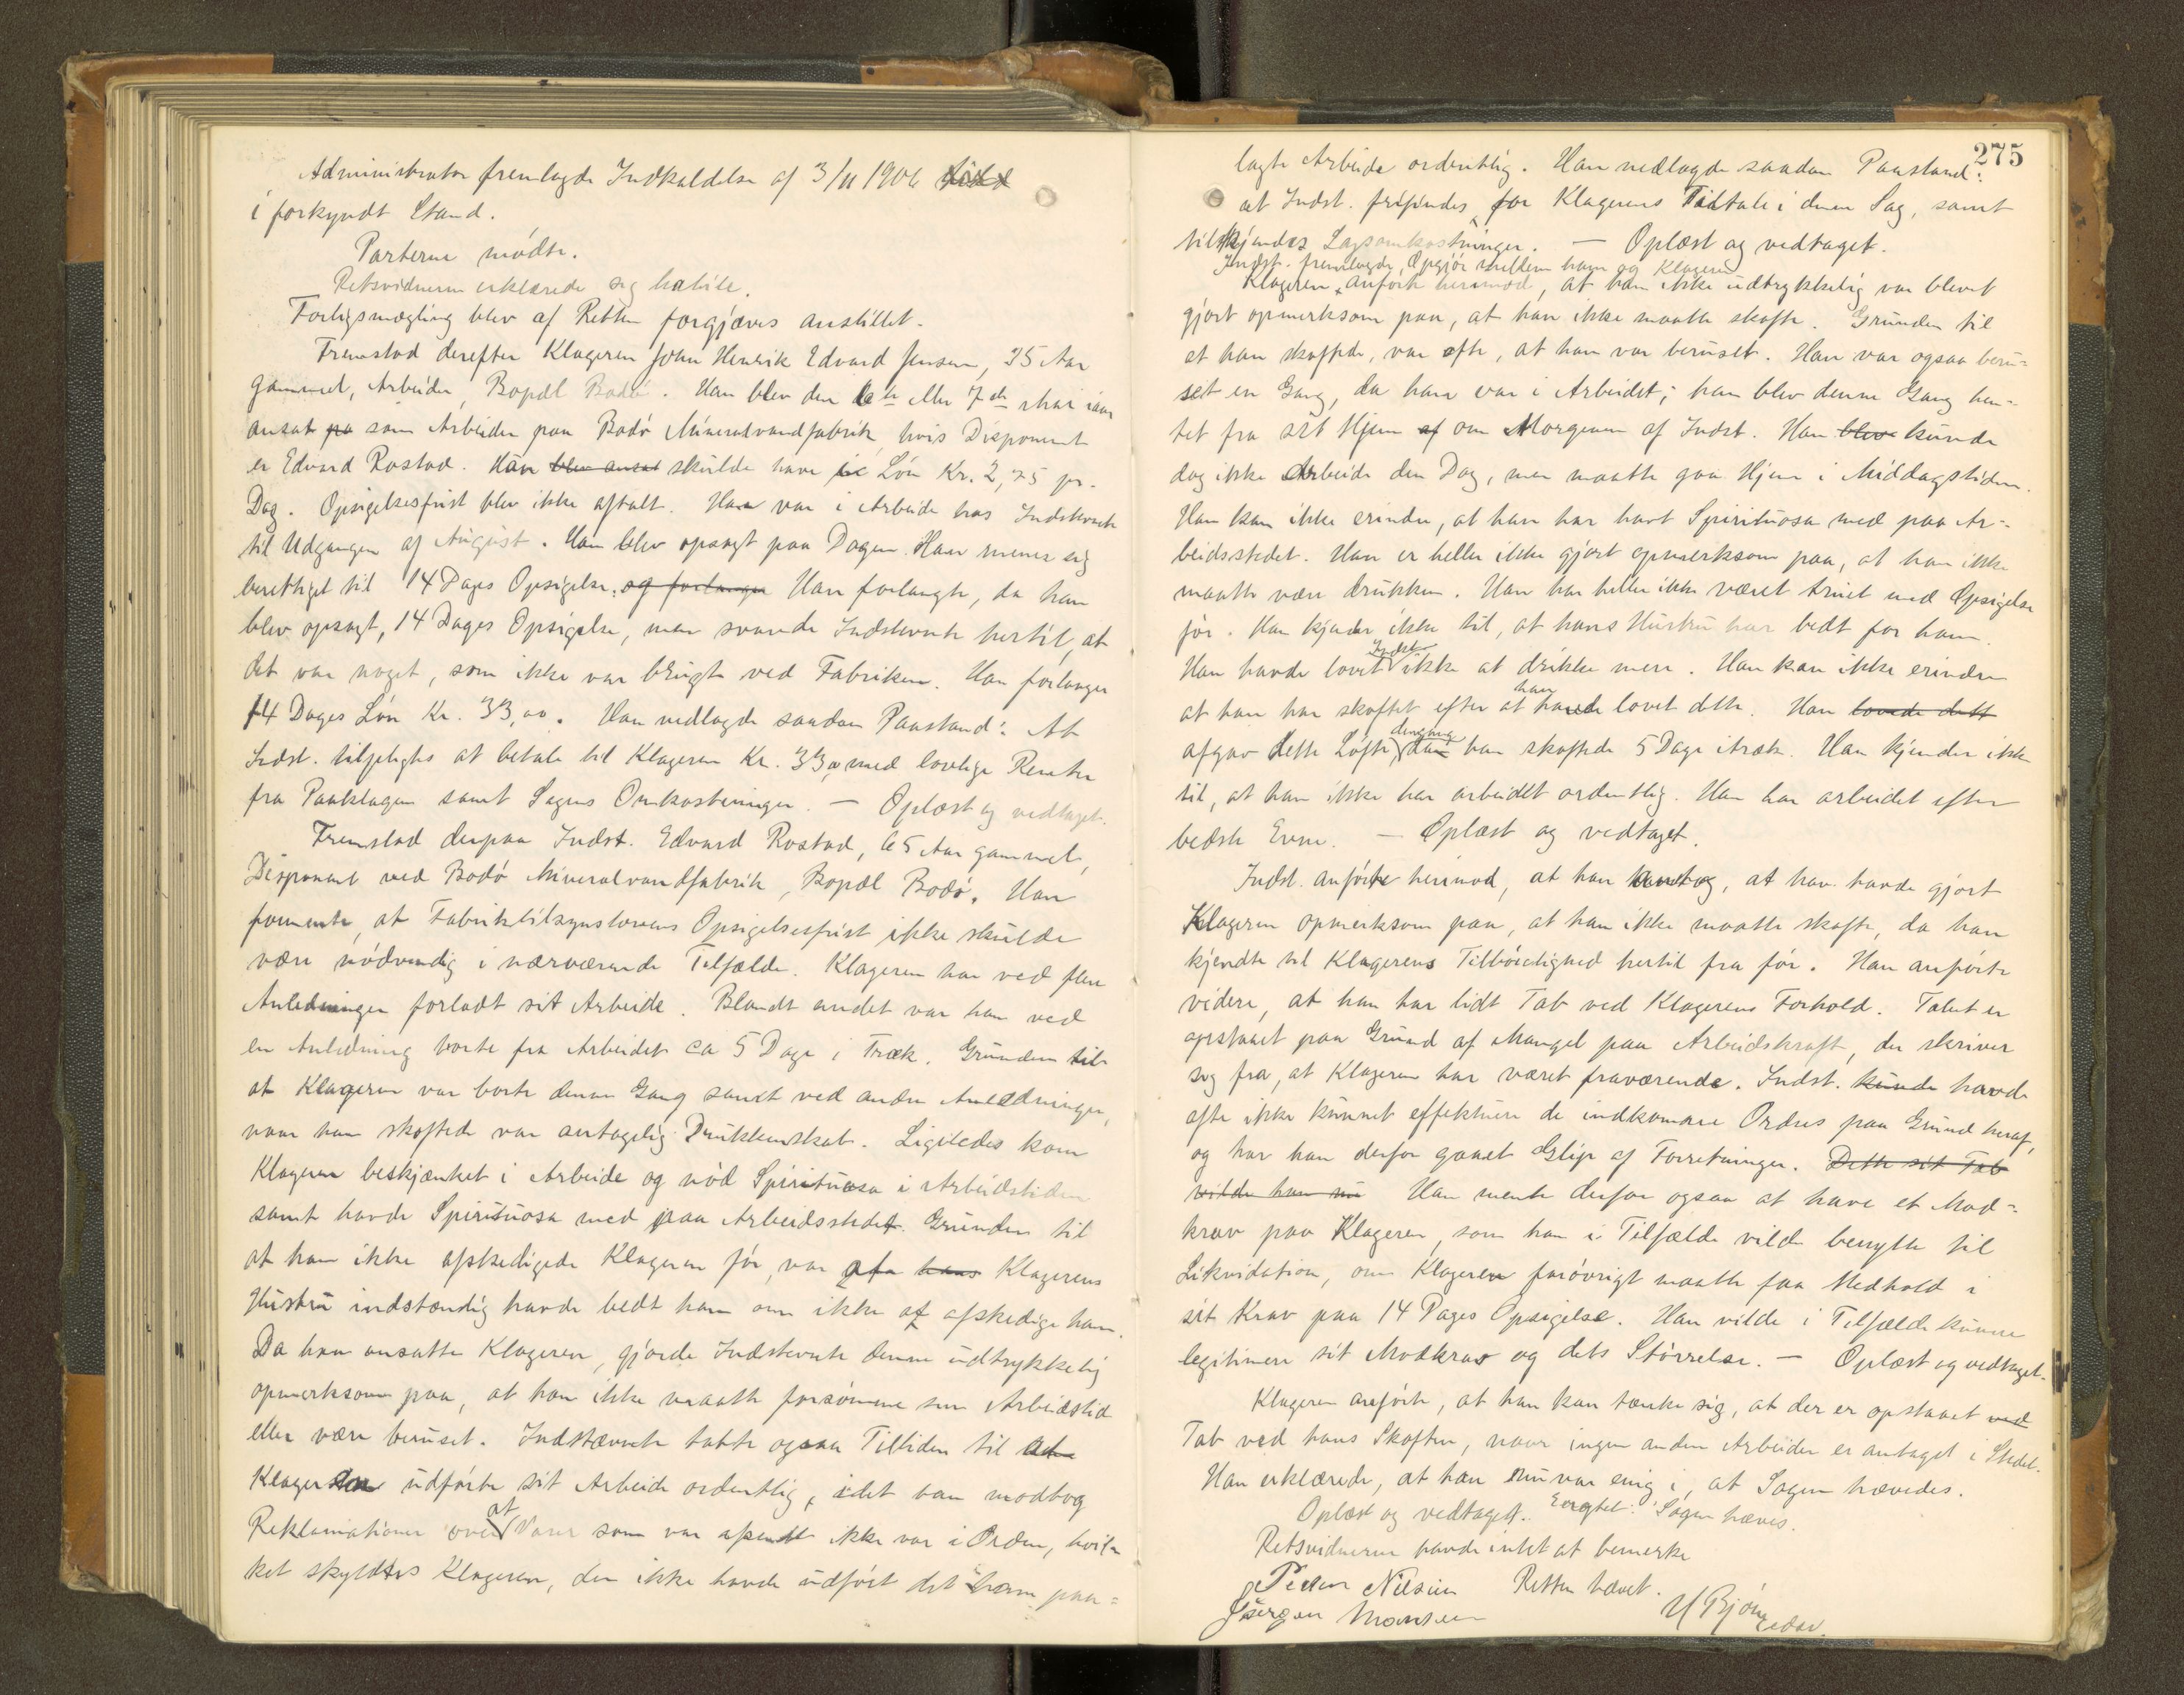 Administrator fremlagde Indkaldelse af 3/11 1906
i forkyndt Stand.
Parterne mødte.
Retsvidnerne erklærede sig habile.
Forligsmægling blev af Retten forgjæves anstillet.
Fremstod derefter Klageren Johan Henrik Edvard Jensen, 35 Aar
gammel, Arbeider, Bopæl Bodø. Han blev den 6te eller 7de Mai iaar
ansat paa som Arbeider paa Bodø Mineralvandfabrik, hvis Disponent
er Edvard Rostad. Han blev ansat skulde have i Løn Kr. 2,75 pr.
Dag. Opsigelsesfrist blev ikke aftalt. Han var i Arbeide hos Indstevnte
til Udgangen af August. Han blev opsagt paa Dagen. Han mener sig
berettiget til 14 Dages Opsigelse, og forlanger Han forlangte, da han
blev opsagt, 14 Dages Opsigelse, men svarede Indstevnte hertil, at
det var noget, som ikke var brugt ved Fabriken. Han forlanger
14 Dages Løn Kr. 33,00. Han nedlagde saadan Paastand: At
Indst. tilpligtes at betale til Klageren Kr. 33,00 med lovlige Renter
fra Paaklagen samt Sagens Omkostninger. — Oplæst og vedtaget.
Fremstod derpaa Indst. Edvard Rostad, 65 Aar gammel,
Disponent ved Bodø Mineralvandfabrik, Bopæl Bodø. Han
formente, at Fabriktilsynslovens Opsigelsesfrist ikke skulde
være nødvendig i nærværende Tilfælde. Klageren har ved flere
Anledninger forladt sit Arbeide. Blandt andet var han ved
en Anledning borte fra Arbeidet ca 5 Dage i Træk. Grunden til
at Klageren var borte denne Gang samt ved andre Anledninger,
naar han skoftede var antagelig Drukkenskab. Ligeledes kom
Klageren beskjænket i Arbeide og nød Spirituosa i Arbeidstiden
samt havde Spirituosa med paa Arbeidsstedet. Grunden til
at han ikke afskedigede Klageren før, var at hans Klagerens
Hustru indstændig havde bedt ham om ikke at afskedige ham.
Da han ansatte Klageren, gjorde Indstevnte denne udtrykkelig
opmerksom paa, at han ikke maatte forsømme sin Arbeidstid
eller være beruset. Indstævnte tabte ogsaa Tilliden til at
Klageren udførte sit Arbeide ordentlig, idet han modtog
Reklamationer over at Varer som var afsendt ikke var i Orden, hvil-
ket skyldtes Klageren, der ikke havde udført det ham paa-
275
lagte Arbeide ordentlig. Han nedlagde saadan Paastand:
at Indst. frifindes for Klagerens Tiltale i denne Sag, samt
tilkjendes Sagsomkostninger. — Oplæst og vedtaget.
Indst. fremlagde Opgjør mellem ham og Klageren
Klageren anførte herimod, at han ikke udtrykkelig var blevet
gjort opmerksom paa, at han ikke maatte skofte. Grunden til
at han skoftede, var ofte, at han var beruset. Han var ogsaa beru-
set en Gang, da han var i Arbeidet; han blev denne Gang hen-
tet fra sit Hjem af om Morgenen af Indst. Han blev kunde
dog ikke Arbeide den Dag, men maatte gaa Hjem i Middagstiden.
Han kan ikke erindre, at han har havt Spirituosa med paa Ar-
beidsstedet. Han er heller ikke gjort opmerksom paa, at han ikke
maatte være drukken. Han har heller ikke været truet med Opsigelse
før. Han kjender ikke til, at hans Hustru har bedt for ham.
Han havde lovet Indst. ikke at drikke mere. Han kan ikke erindre
at han har skoftet efter at han havde lovet dette. Han lovede dett
afgav dette Løfte, dengang da han skoftede 5 Dage itræk. Han kjender ikke
til, at han ikke har arbeidet ordentlig. Han har arbeidet efter
bedste Evne. — Oplæst og vedtaget.
Indst. anførte herimod, at han antog, at han havde gjort
Klageren opmerksom paa, at han ikke maatte skofte, da han
kjendte til Klagerens Tilbøielighed hertil fra før. Han anførte
videre, at han har lidt Tab ved Klagerens Forhold. Tabet er
opstaaet paa Grund af Mangel paa Arbeidskraft, der skriver
sig fra, at Klageren har været fraværende. Indst. kunde havde
ofte ikke kunnet effektuere de indkomne Ordres paa Grund heraf,
og har han derfor gaaet Glip af Forretninger. Dette sit Tab
vilde han nu Han mente derfor ogsaa at have et Mod-
krav paa Klageren, som han i Tilfælde vilde benytte til
Likvidation, om Klageren forøvrigt maatte faa Medhold i
sit Krav paa 14 Dages Opsigelse. Han vilde i Tilfælde kunne
legitimere sit Modkrav og dets Størrelse. — Oplæst og vedtaget.
Klageren anførte, at han kan tænke sig, at der er opstaaet ved
Tab ved hans Skoften, naar ingen anden Arbeider er antaget i Stedet.
Han erklærede, at han nu var enig i, at Sagen hævedes.
Oplæst og vedtaget. Eragtet: Sagen hæves.
Retsvidnerne havde intet at bemerke
Peder Nilsen Retten hævet.
Jørgen Monsen